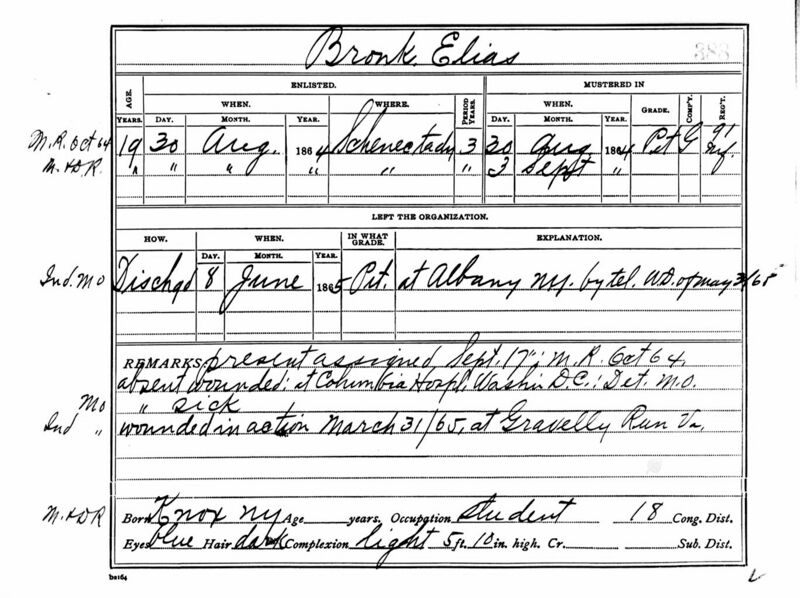 Bronk, Elias 383
ENLISTED. MUSTERED IN
AGE. WHEN. WHERE. PERIOD YEARS. WHEN. GRADE. COMP'Y. REG'T.
YEARS. DAY. MONTH. YEAR. DAY. MONTH. YEAR.
M.R. Oct 64 19 30 Aug. 1864 Schenectady 3 30 Aug 1864 Pvt G 91
M. & D.R. " " " " " 3 Sept " Inf.
LEFT THE ORGANIZATION.
HOW. WHEN. IN WHAT GRADE. EXPLANATION.
DAY. MONTH. YEAR.
Ind. MO Dischgd 8 June 1865 Pvt. at Albany NY. by tel. W.D. of May 3/65
REMARKS present assigned Sept. 17"; M.R. Oct 64.
absent wounded: at Columbia Hospl. Washn D.C.; Det. M.O.
MO " sick
Ind " wounded in action March 31/65, at Gravelly Run Va.
M. & D R Born Knox NY Age years, Occupation student 18 Cong. Dist.
Eyes blue Hair dark Complexion light 5 ft. 10 in. high. Cr. Sub. Dist.
bs164